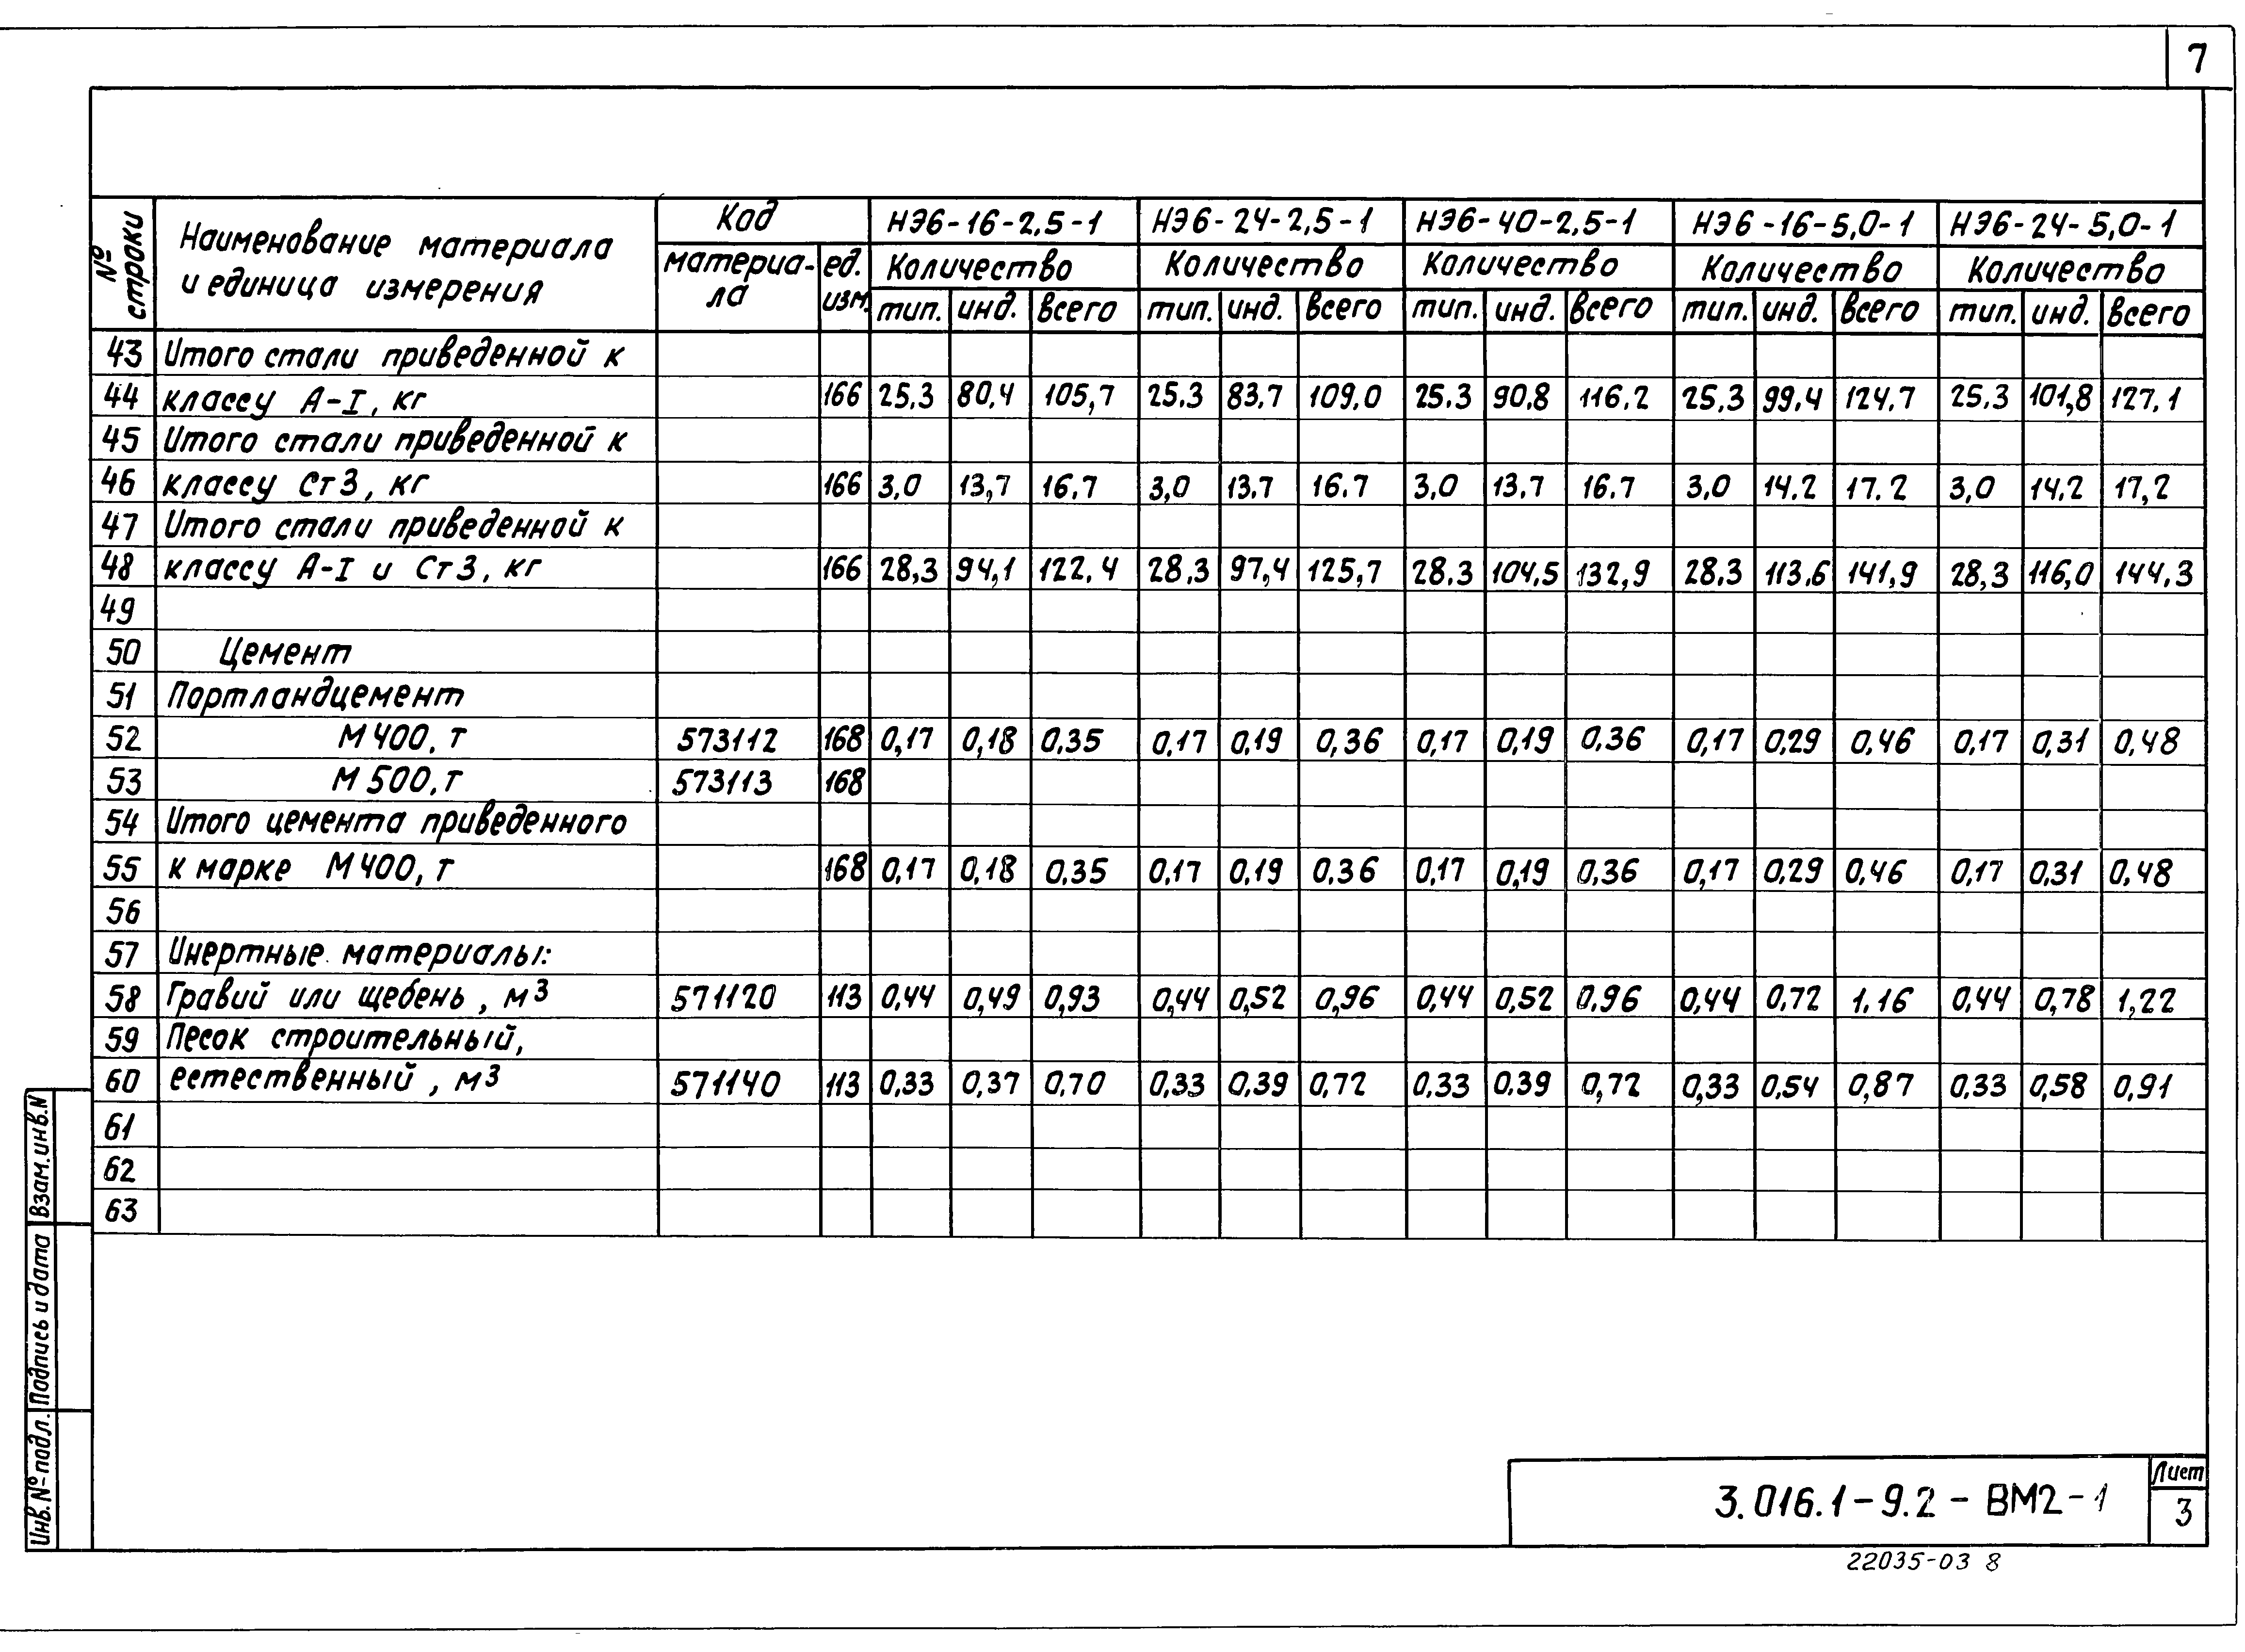 7
№ строки | Наименование материала и единица измерения | Код | НЭ6-16-2,5-1 | НЭ6-24-2,5-1 | НЭ6-40-2,5-1 | НЭ6-16-5,0-1 | НЭ6-24-5,0-1
материа-ла | ед. изм. | Количество | Количество | Количество | Количество | Количество
тип. | инд. | всего | тип. | инд. | всего | тип. | инд. | всего | тип. | инд. | всего | тип. | инд. | всего
43 Итого стали приведенной к
44 классу А-I, кг 166 25.3 80,4 105,7 25.3 83.7 109.0 25.3 90.8 116.2 25.3 99.4 124.7 25.3 101,8 127.1
45 Итого стали приведенной к
46 классу Ст3, кг 166 3,0 13,7 16.7 3,0 13.7 16.7 3,0 13.7 16.7 3,0 14.2 17.2 3,0 14.2 17,2
47 Итого стали приведенной к
48 классу А-I и Ст3, кг 166 28,3 94,1 122,4 28,3 97,4 125,7 28.3 104,5 132,9 28.3 113.6 141,9 28,3 116,0 144,3
49
50 Цемент
51 Портландцемент
52 М400, т 573112 168 0,17 0,18 0,35 0,17 0,19 0,36 0,17 0,19 0,36 0,17 0,29 0,46 0,17 0,31 0,48
53 М500, т 573113 168
54 Итого цемента приведенного
55 к марке М400, т 168 0,17 0,18 0,35 0,17 0,19 0,36 0,17 0,19 0,36 0,17 0,29 0,46 0,17 0,31 0,48
56
57 Инертные материалы:
58 Гравий или щебень, м3 571120 113 0,44 0,49 0,93 0,44 0,52 0,96 0,44 0,52 0,96 0,44 0,72 1.16 0,44 0,78 1,22
59 Песок строительный,
60 естественный, м3 571140 113 0,33 0,37 0,70 0,33 0,39 0,72 0.33 0,39 0,72 0,33 0,54 0,87 0,33 0,58 0,91
61
62
63
Взам.инв.N
Подпись и дата
Инв.№ подл.
3.016.1-9.2-ВМ2-1
Лист
3
22035-03 8